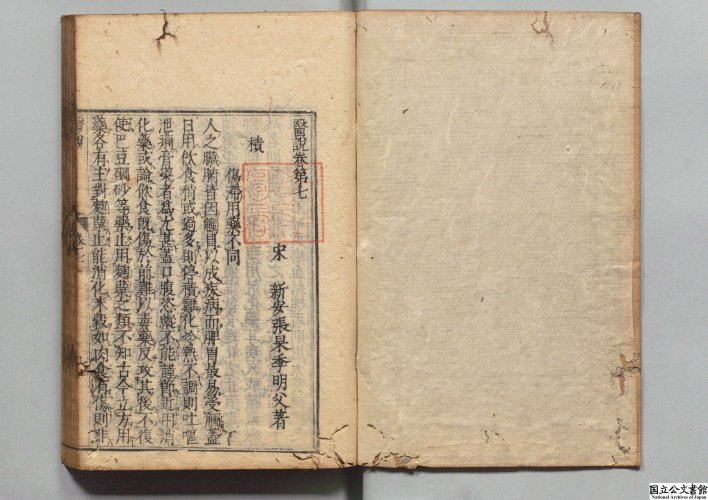 醫說卷第七
宋 新安張杲季明父著
積
傷滯用藥不同
人之臟腑皆因觸冒以成疾病而脾胃最易受觸蓋
日用飲食稍或過多則停積難化冷熱不調則吐嘔
泄痢膏粱者爲尤甚蓋口腹恣縱不能謹節近用消
化藥或論飲食既傷於前難以毒藥反攻其後不復
使巴豆硇砂等藥止用麴蘗之類不知古今立方用
藥各有主對麴蘗止能消化米穀如肉食有傷則非
國立公文書館
National Archives of Japan